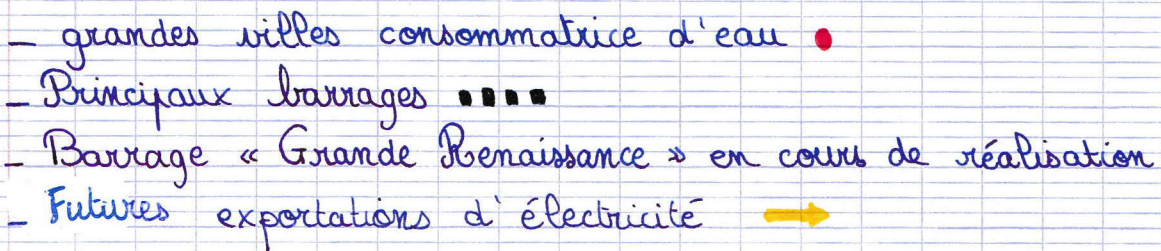 - grandes villes consommatrice d'eau
- Principaux barrages
- Barrage « Grande Renaissance » en cours de réalisation
- Futures exportations d'électricité